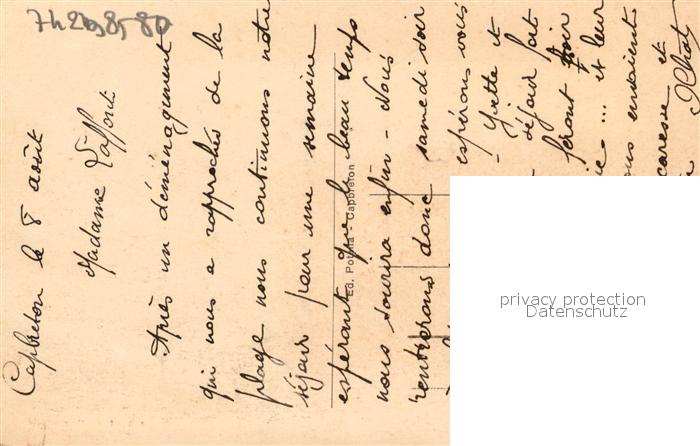 7h 209 85-80
Capbreton le 8 août
Madame Laffont
Après un déménagement
qui nous a rapprochés de la
plage nous continuons notre
séjour pour une semaine
espérant que le beau temps
nous sourira enfin - Nous
rentrerons donc samedi soir
espérons vous
Yvette et
séjour fort
feront
... et leur
envoient
caresse et
Ed. - Capbreton
privacy protection
Datenschutz